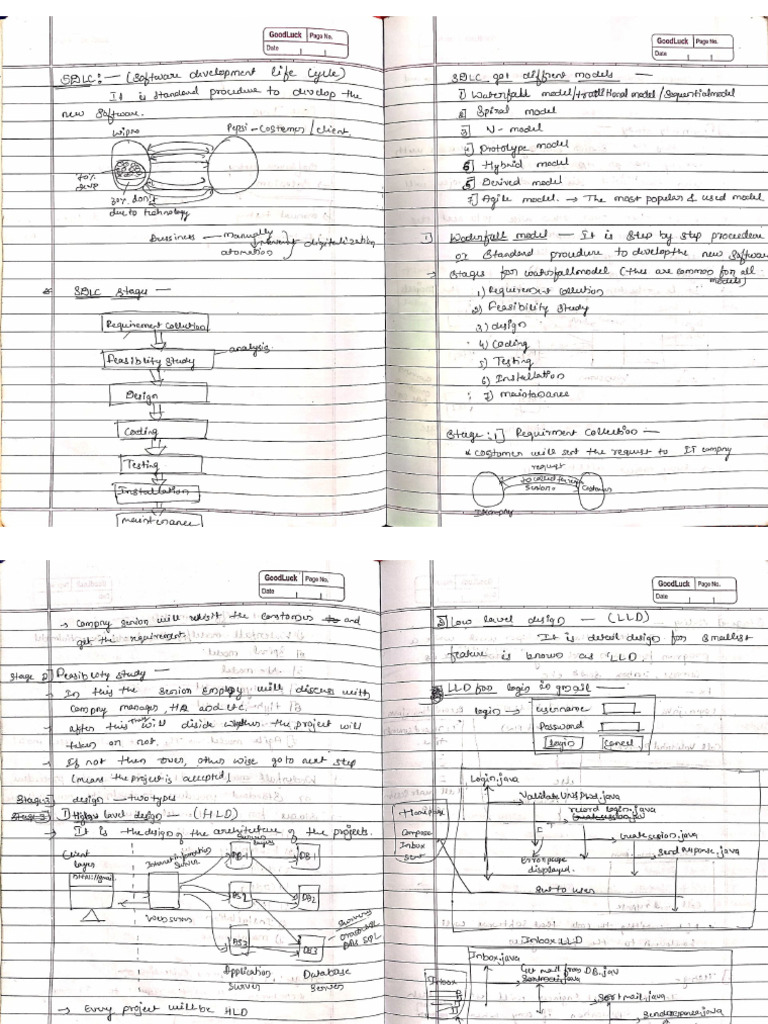 GoodLuck Page No.
Date
SDLC:— (Software development life cycle)
It is standard procedure to develop the
new software.
Wipro Pepsi - Costomer / client
70%
30% don't
due to technology
Bussiness — manually
* SDLC Stages —
Requirement Collution
Feasiblity study — analysis
Design
Coding
Testing
Installation
maintenance
GoodLuck Page No.
Date
SDLC got different models —
1] Waterfall model/traditional model/sequential model
2] Spiral model
3] V-model
4] Prototype model
6] Hybrid model
5] Derived model
7] Agile model. → The most popular & used model
1] Waterfall model — It is step by step procedeur
or standard procedure to develop the new software
→ Stages for waterfall model (these are common for all
models)
1) Requirement collution
2) Feasibility study
3) design
4) Coding
5) Testing
6) Installation
7) maintanance
Stage: 1] Requirment Collection —
* Costomer will sent the request to IT compny
request
Costomer
IT compny
GoodLuck Page No.
Date
→ Compny senior will the Costomer and
get the requirement.
Stage 2] Feasiblity study —
→ In this the senior employ will discuss with
compny manager, HR and etc.
→ after this they will diside the project will
taken or not.
→ If not then over, other wise go to next step
(means the project is accepted)
Stage 3 design — two types
1] High level design — (HLD)
→ It is the design of the architecture of the projects.
Client
layer
Server
Web server
DB-1
DB2
DB3
Application
Server
Database
Server
→ Every project will be HLD
GoodLuck Page No.
Date
2] Low level design — (LLD)
It is detail design for smallest
feature is known as LLD.
LLD for login in gmail —
login → username
Password
Login Cancel
Login.java
Validate UN&Pwd.java
record login.java
Create session.java
Send response.java
Error page
displayed.
Sent to user
Home page
Compose
Inbox
Sent
Inbox LLD
Inbox.java
Get mail from DB.java
Sort mail.java
Send response.java
Inbox